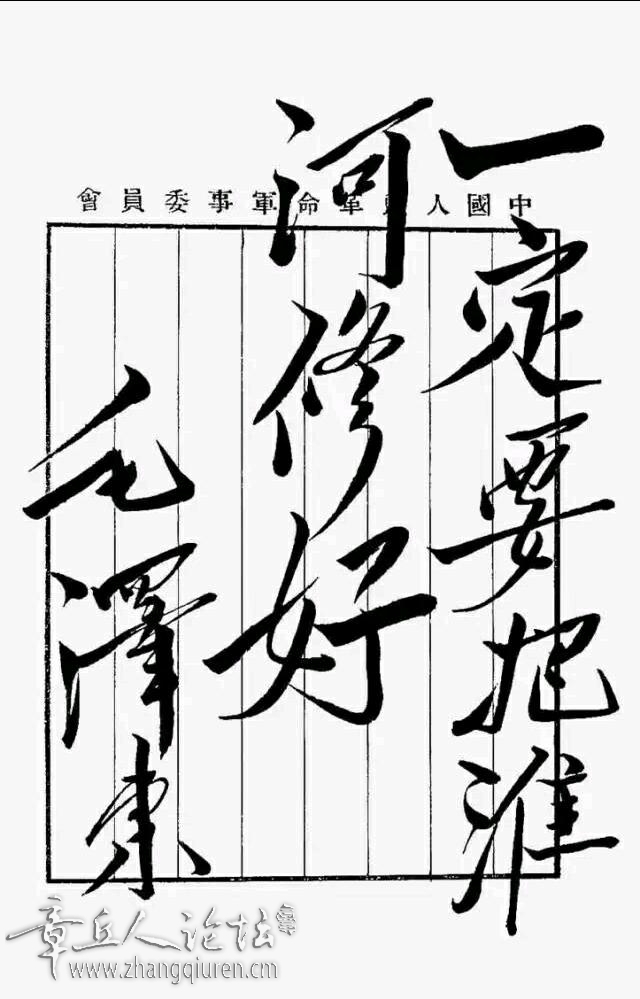 中國人民革命軍事委員會
一定要把淮
河修好
毛澤東
章丘人论坛
www.zhangqiuren.cn